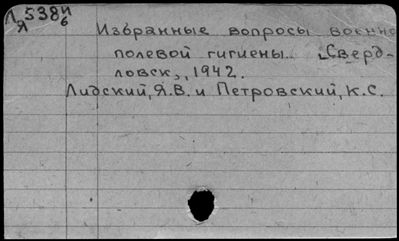 Л 538 и
Я б
Избранные вопросы военно
полевой гигиены.. Сверд-
ловск,, 1942.
Лидский, Я.В. и Петровский, К.С.